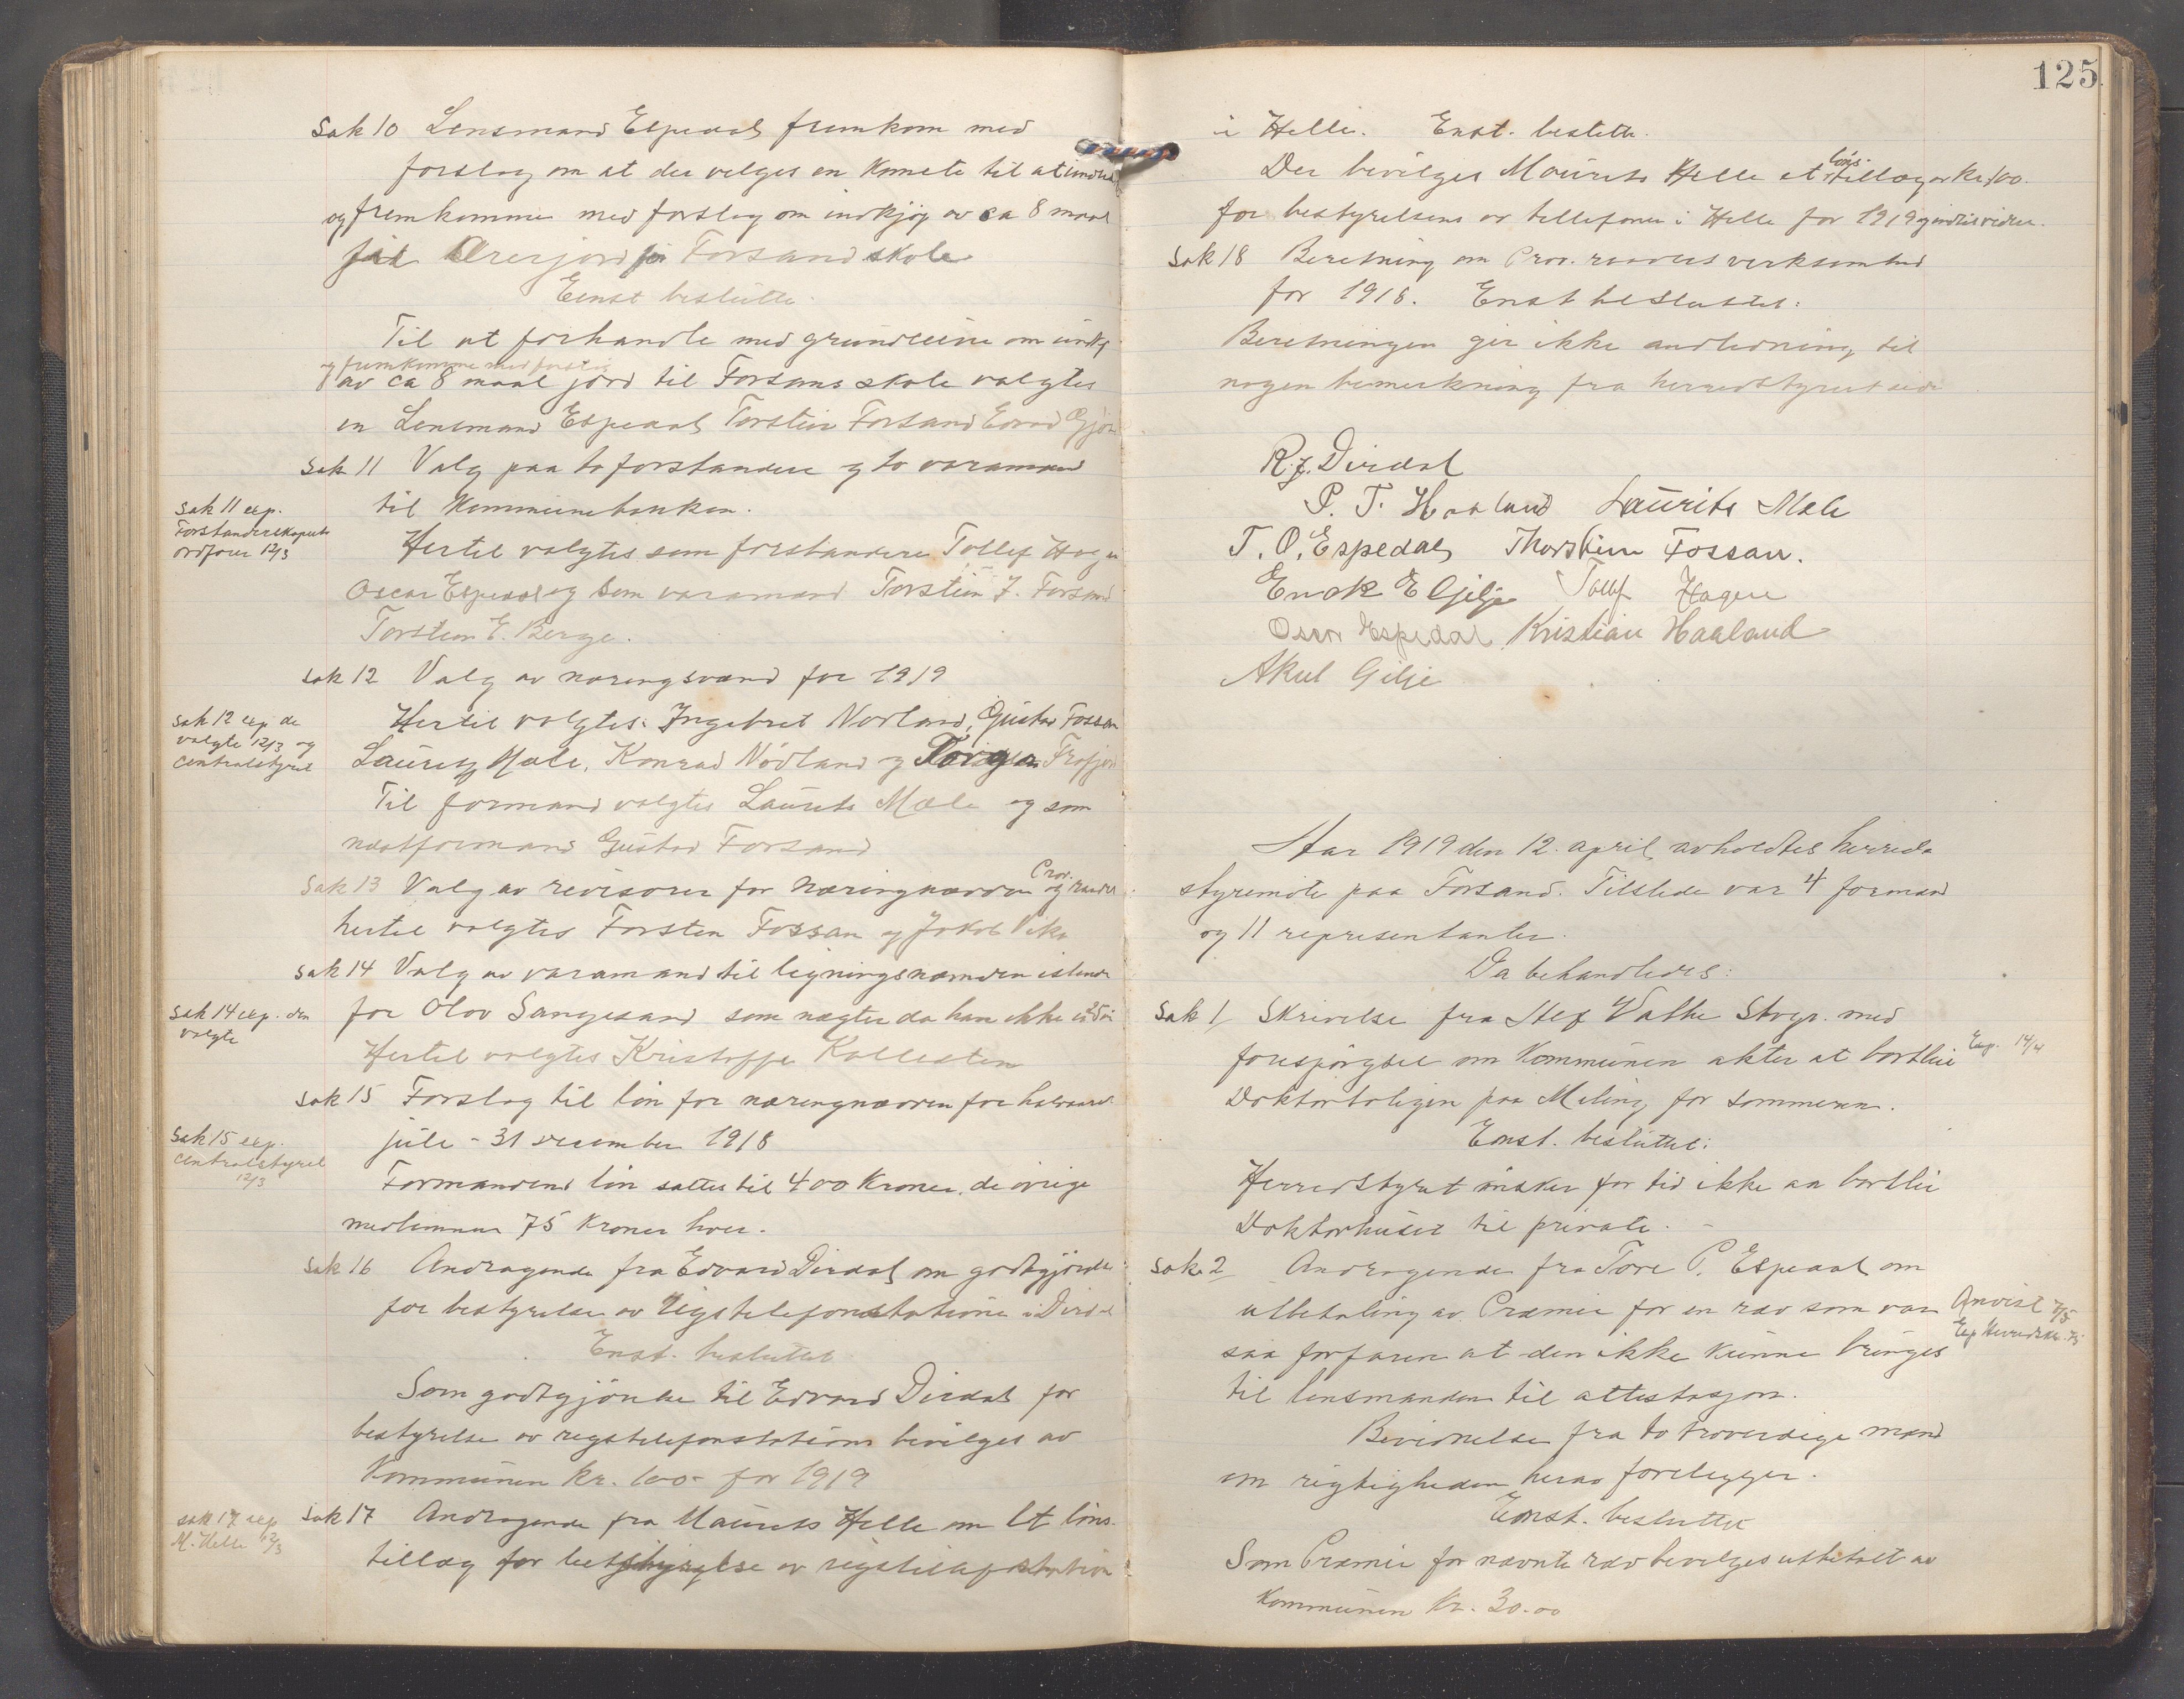 Sak 10 Lensmand Espedal fremkom med
forslag om at der velges en komete til at
og fremkomme med forslag om indkjøp av ca 8 maal
jord for Forsand skole
Enst beslutte.
Til at forhandle med grundeiere om indkj
og fremkomme med forslag
av ca 8 maal jord til Forsans skole valgtes
en Lensmand Espedal Torstein Forsand Edvard
Sak 11 Valg paa to forstandere og to varamænd
til Kommunebanken.
Sak 11 exp.
Forstanderskapets
ordfører 12/3
Hertil valgtes som forstandere Tollef Hagen
Oscar Espedal og som varamænd Torstein J. Forsand
Torstein E. Berge.
Sak 12 Valg av næringsnævnd for 1919
Sak 12 exp. de
valgte 12/3 og
Centralstyret
Hertil valgtes: Ingebret Norland, Gustav Fossan
Laurits Mæle, Konrad Nödland og Torger Frafjord
Til formand valgtes Laurits Mæle og som
næstformand Gustav Forsand
Sak 13 Valg av revisorer for Næringnævden og Prov. raadet
hertil valgtes Torsten Fossan og Jakob Vika
Sak 14 Valg av varamand til ligningsnævnden istende
Sak 14 exp. den
valgte
for Olov Sangesand som nægter da han ikke er 25 år
Hertil valgtes Kristoffe Kallesten
Sak 15 Forslag til løn for næringnævden for halvaaret
Sak 15 exp.
Centralstyret
12/3
juli - 31 desember 1918
Formandens lön sattes til 400 Kroner, de övrige
medlemmer 75 Kroner hver.
Sak 16 Andragende fra Edvard Dirdal om godtgjörelse
for bestyrelse av rigstelefonstationen i Dirdal
Enst. besluttet
Som godtgjörelse til Edvard Dirdal for
bestyrelse av regstelefonstationen bevilges av
Kommunen kr. 100- for 1919
Sak 17 exp
M. Helle 12/3
Sak 17 Andragende fra Maurits Helle om Et löns-
tillæg for bestyrelse av rigstellefstation
125
i Helle. Enst. beslutte.
Der bevilges Maurits Helle et lönstillæg av Kr. 100.
for bestyrelsens av tellefonen i Helle for 1919 og indtil videre.
Sak 18 Beretning om Prov. raadets verksomhed
for 1918. Enst besluttet:
Beretningen gir ikke andledning til
nogen bemerkning fra herredstyrets side
R. J. Dirdal
P. T. Haaland Laurits Mæle
T. O. Espedal Thorstein Fossan.
Enok E Gilje Tollef Hagen
Oscar Espedal Kristian Haaland
Aksel Gilje
Aar 1919 den 12. april avholdtes herreds
styremöte paa Forsand. Tilstede var 4 formænd
og 11 representanter.
Da behandledes:
Sak 1/ Skrivelse fra Stef Vathe Stvgr. med
forespörgsel om Kommunen akter at bortleie
Exp. 14/4
Doktorboligen paa Meling for sommeren.
Enst. besluttet:
Herredstyret önsker for tid ikke aa bortleie
Doktorhuset til private.
Sak 2 Andragende fra Tore P. Espedal om
utbetaling av Præmie for en ræv som var
Anvist 7/5
Exp Herredsk. 7/5
saa forfaren at den ikke kunne bringes
til lensmanden til attestasjon.
Bevidnelse fra to troverdige mænd
om rigtigheden herav foreligger.
Enst. besluttet
Som Præmie for nævnte ræv bevilges utbetalt av
Kommunen Kr. 30.00